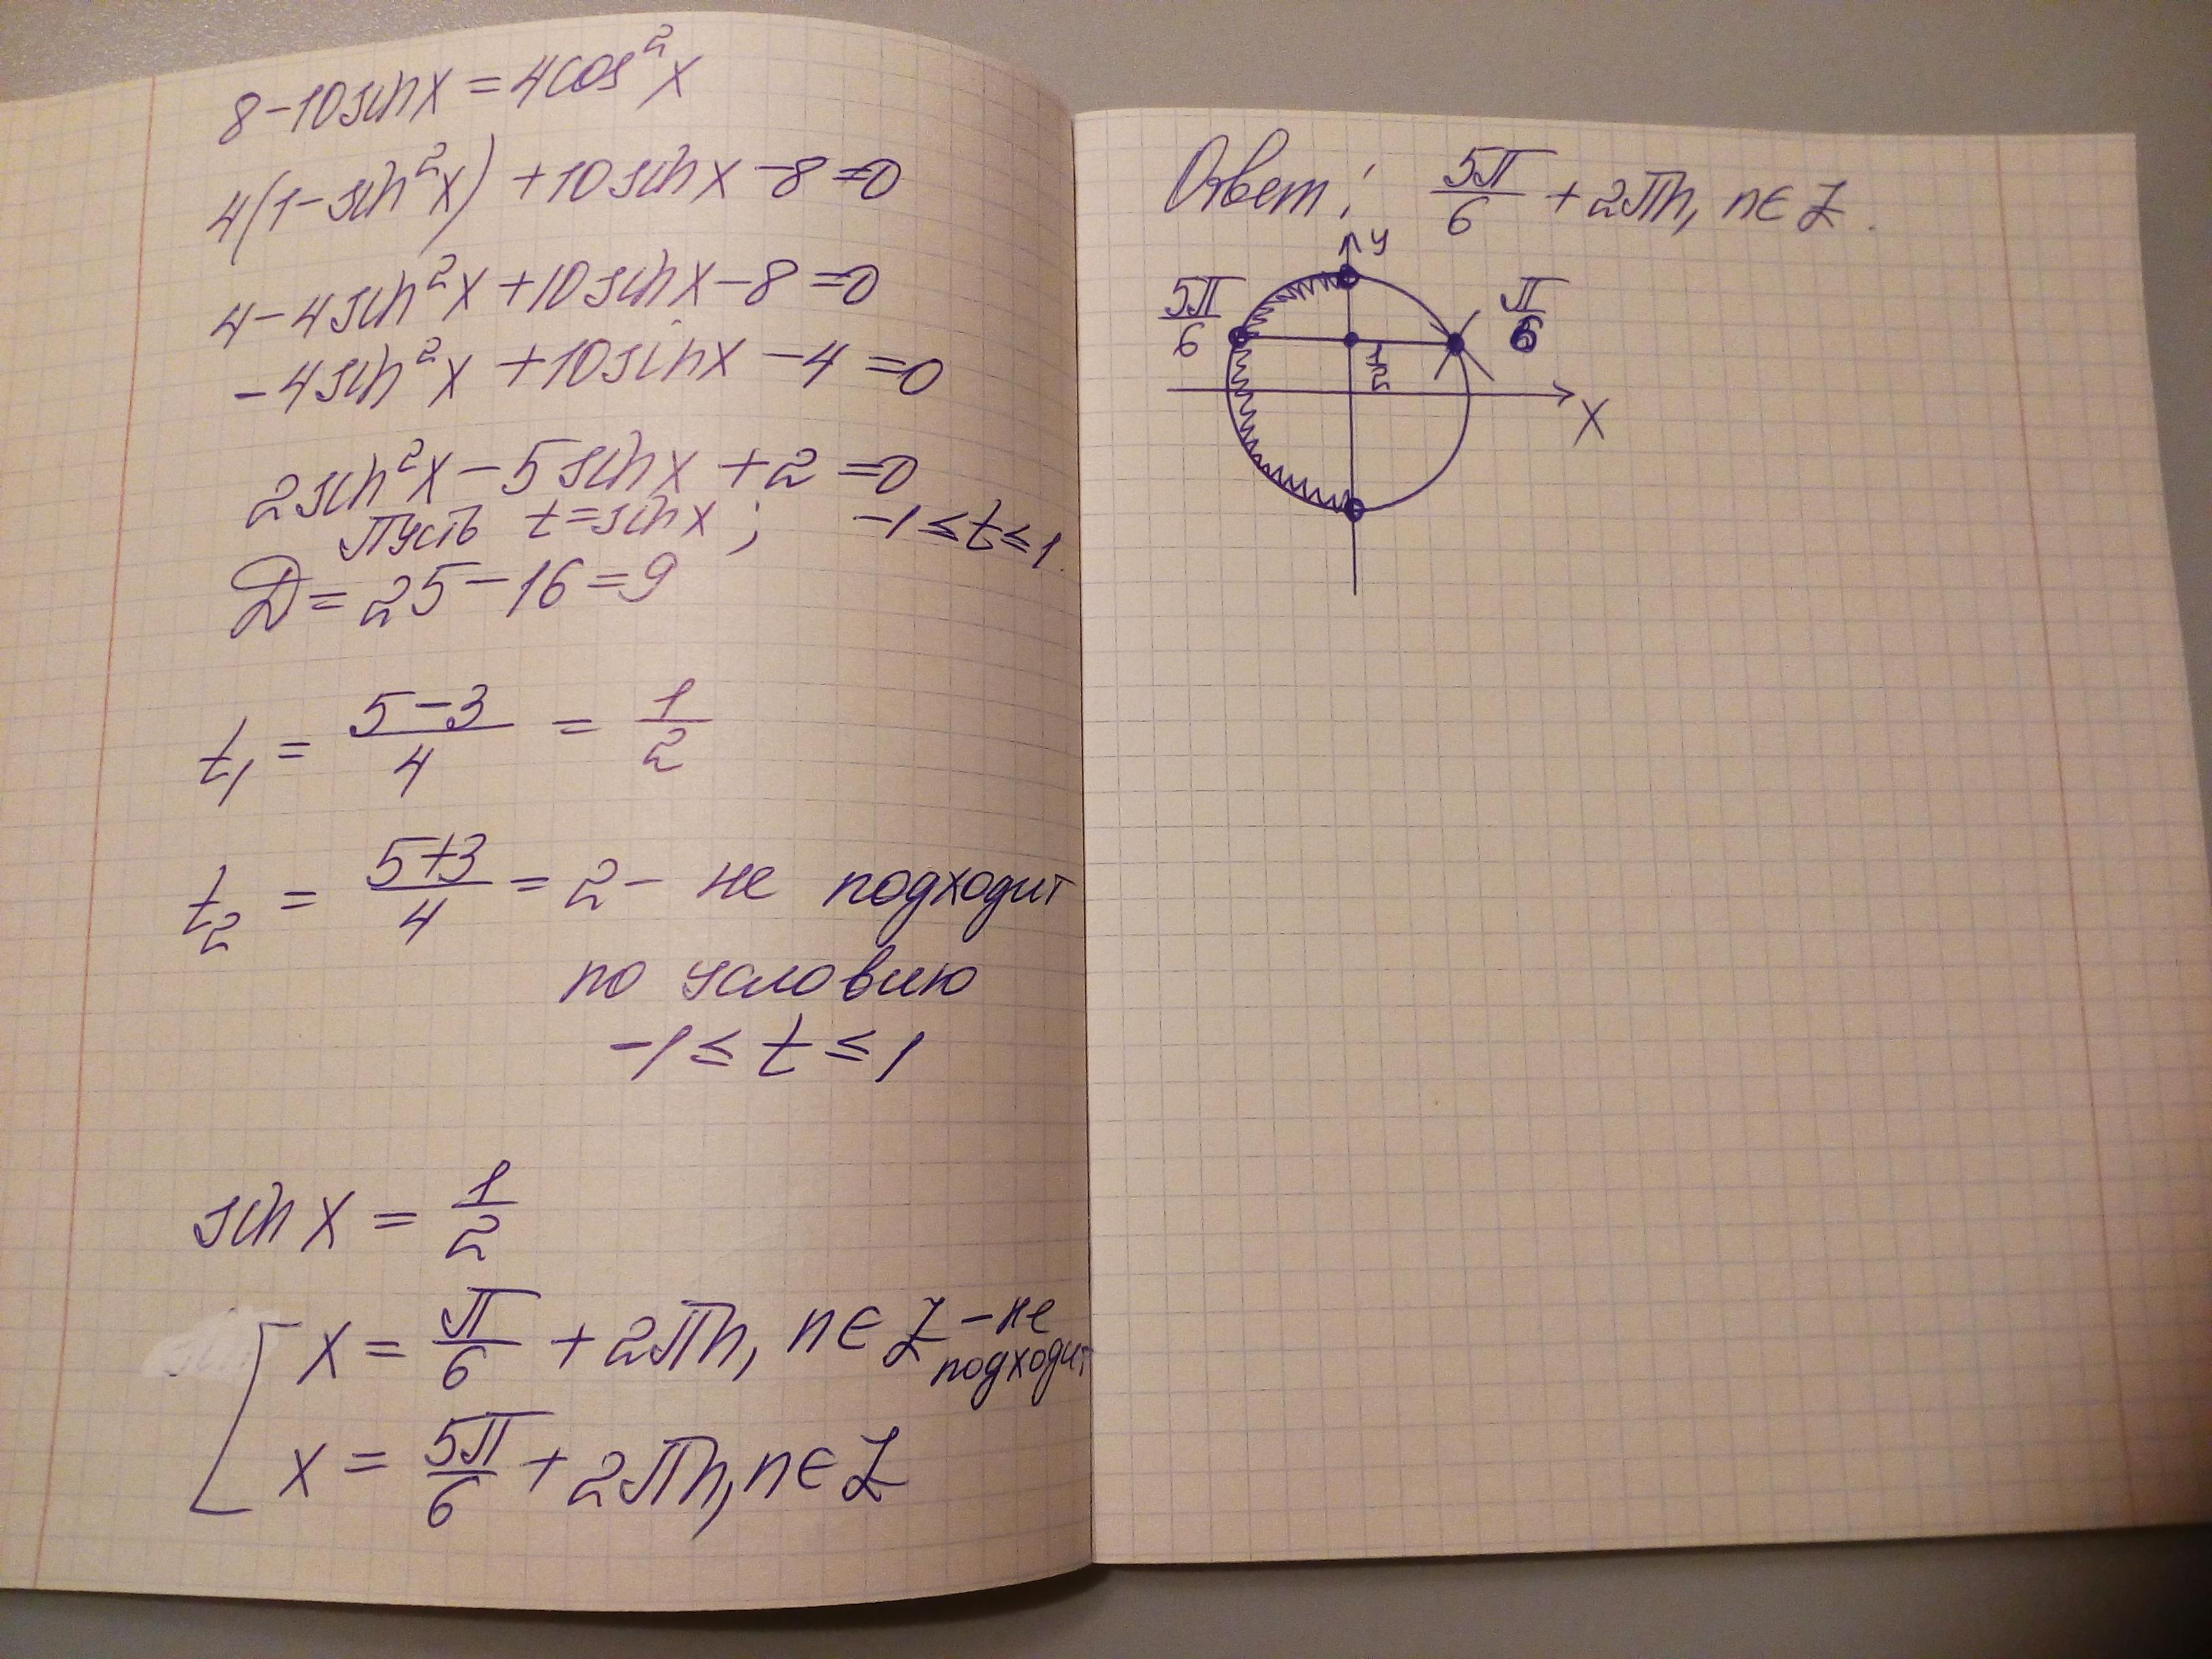 8-10sinx=4cos²x
4(1-sin²x)+10sinx-8=0
4-4sin²x+10sinx-8=0
-4sin²x+10sinx-4=0
2sin²x-5sinx+2=0
Пусть t=sinx; -1≤t≤1.
D=25-16=9
t₁ = (5-3)/4 = 1/2
t₂ = (5+3)/4 = 2- не подходит
по условию
-1≤t≤1
sin x = 1/2
[ x = π/6 + 2πn, n∈Z - не подходит
x = 5π/6 + 2πn, n∈Z
Ответ: 5π/6 + 2πn, n∈Z.
y
5π/6 π/6
1/2
x